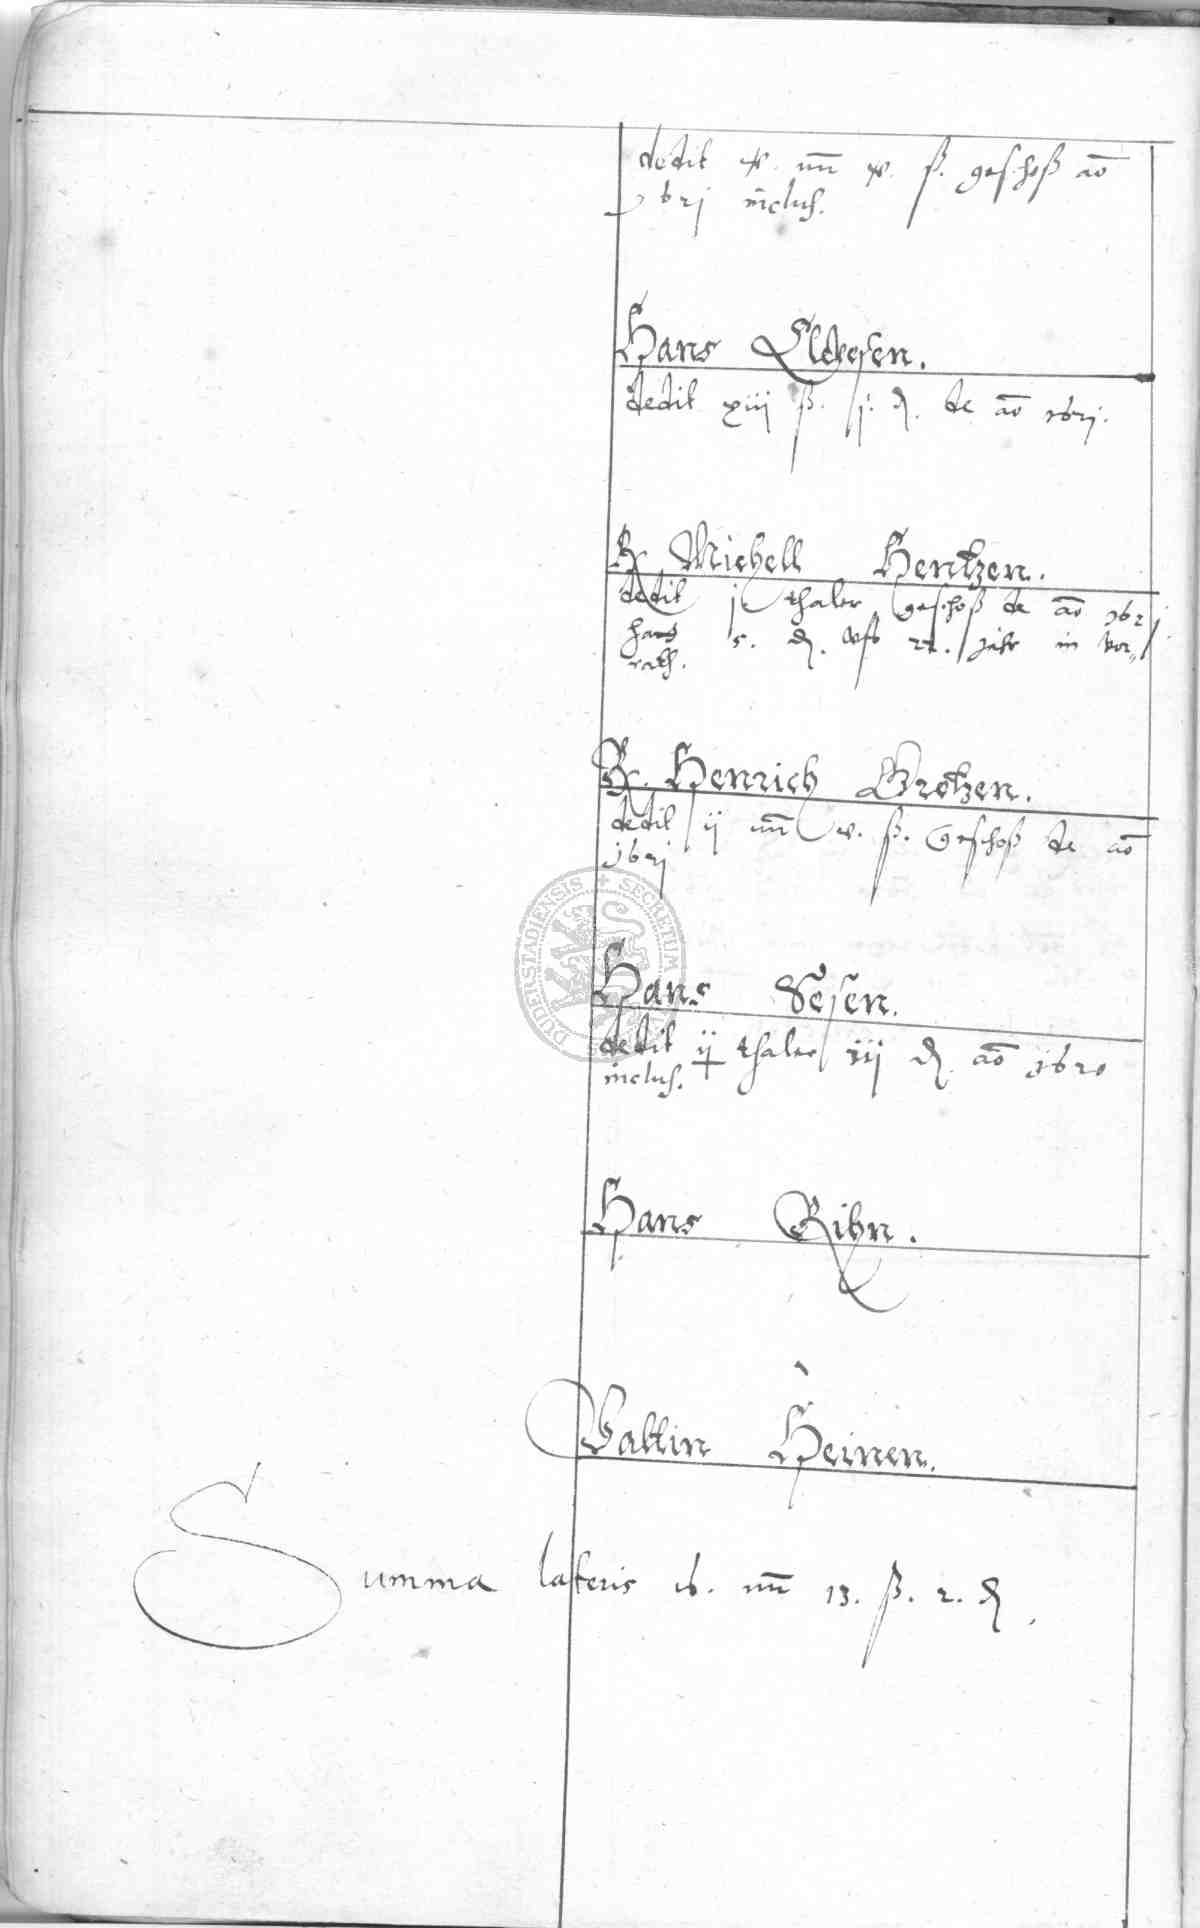 dedit v. mr v. ß. geschoß ao
1621 inclus.
Hans Eldesen.
dedit xiij ß. j. d. de ao 1621.
H. Michell Hentzen.
dedit j thaler geschoß de ao 1621.
hatt 5. d. vfs 22. jahr in vor„
rath.
H. Henrich Gretzen.
dedit ij mr v. ß. Geschoß de ao
1621
Hans Vesen.
dedit ij thaler iij d. ao 1620
inclus.
Hans Rihn.
Valtin Heinen.
Summa lateris 16. mr 13. ß. 2. d.
DUDERSTADIENSIS + SECRETUM